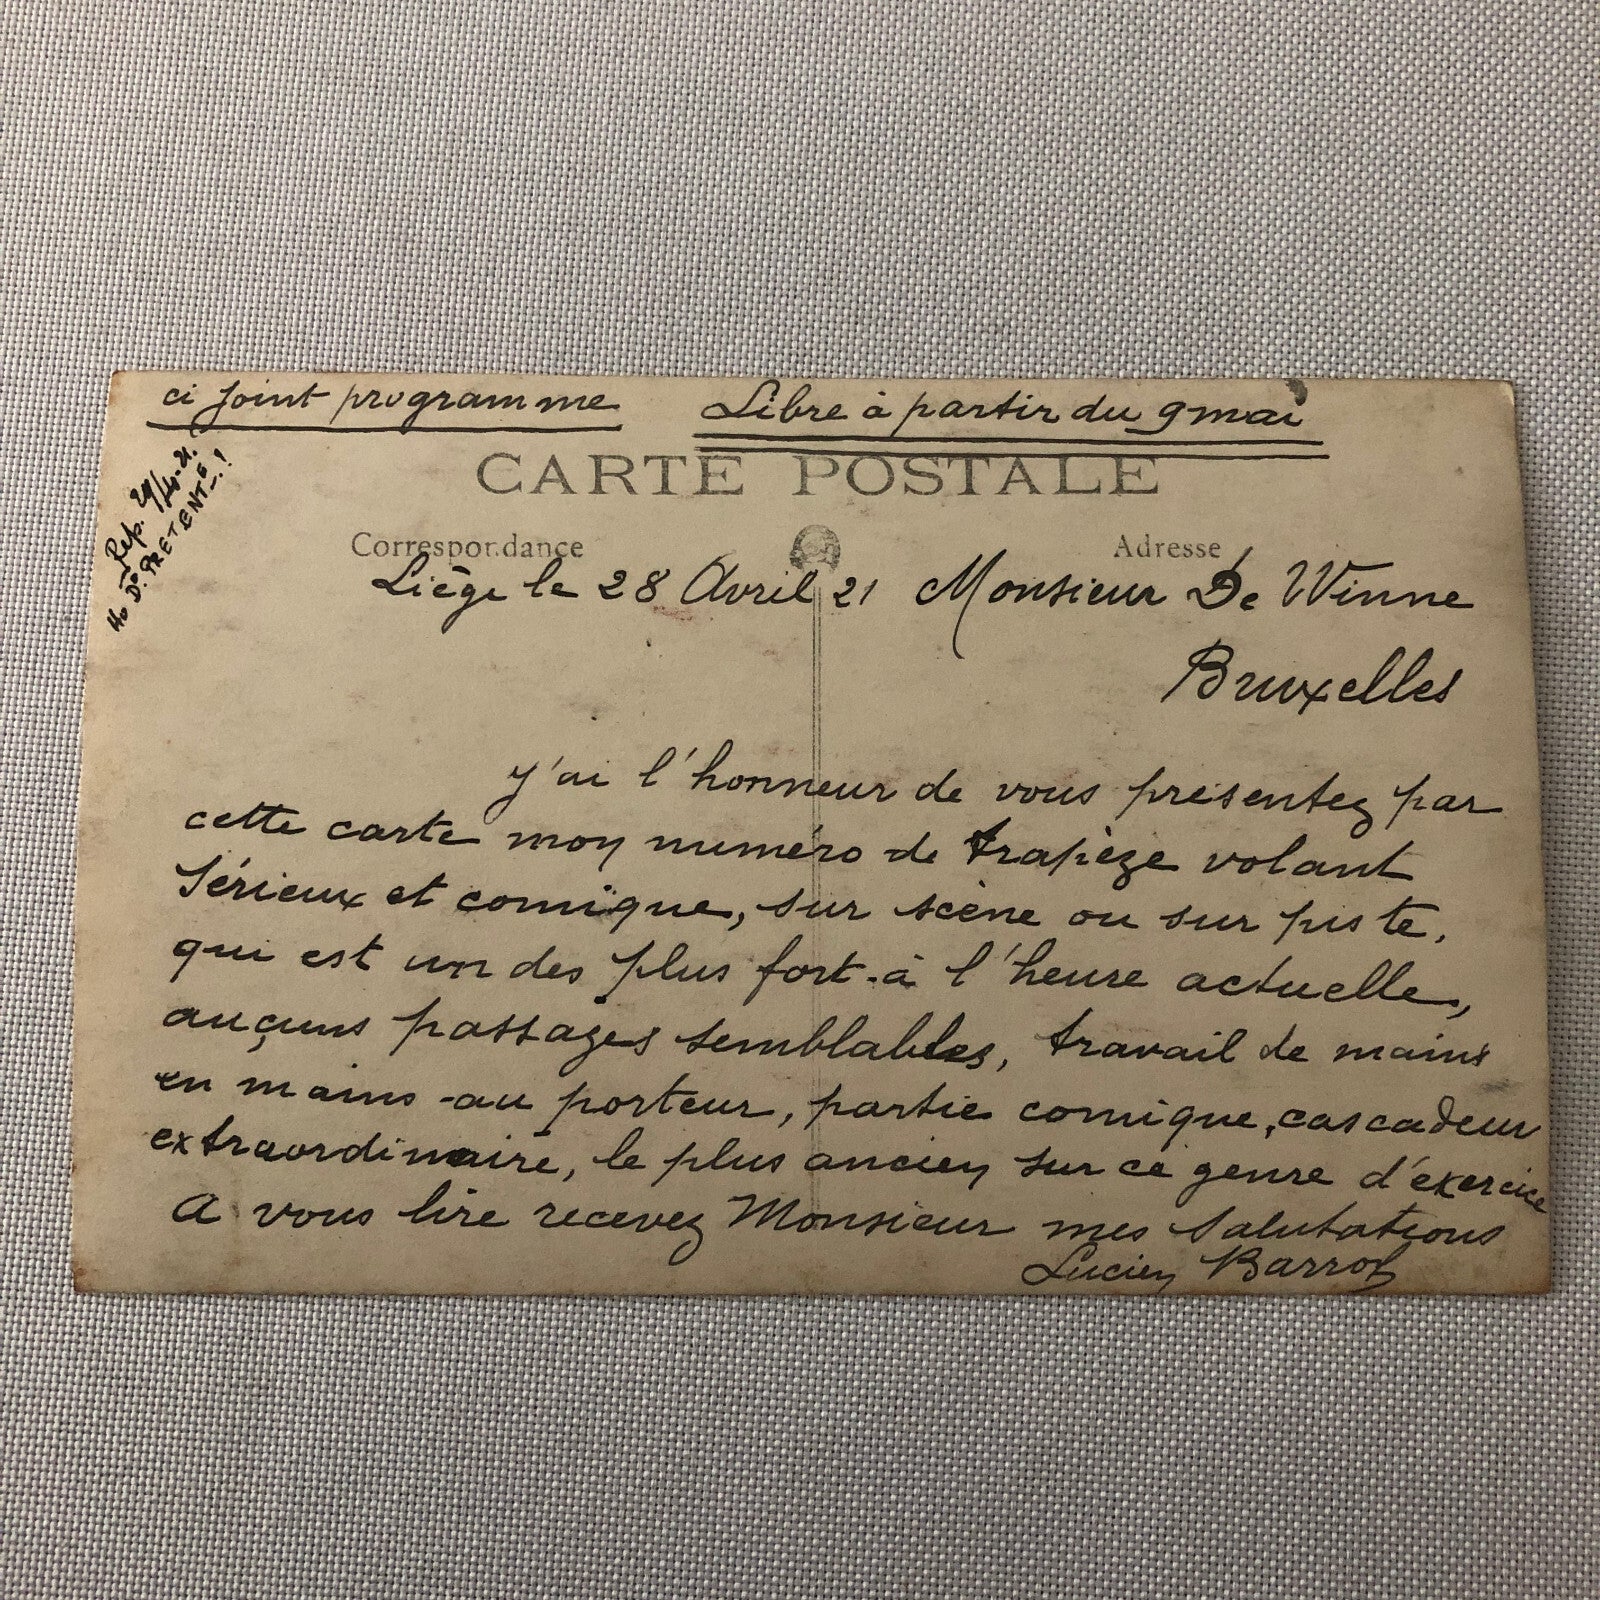 ci joint programme
Libre à partir du 9 mai
Rep. 29/4-21.
PRETENTE_!
CARTE POSTALE
Correspondance
Adresse
Liége le 28 Avril 21
Monsieur De Winne
Bruxelles
j'ai l'honneur de vous présentez par
cette carte mon numéro de trapèze volant
Sérieux et comique, sur scène ou sur piste,
qui est un des plus fort à l'heure actuelle,
auçuns passages semblables, travail de mains
en mains au porteur, partie comique, cascadeur
extraordinaire, le plus ancien sur ce genre d'exercice
A vous lire recevez Monsieur mes Salutations
Lucien Barrot